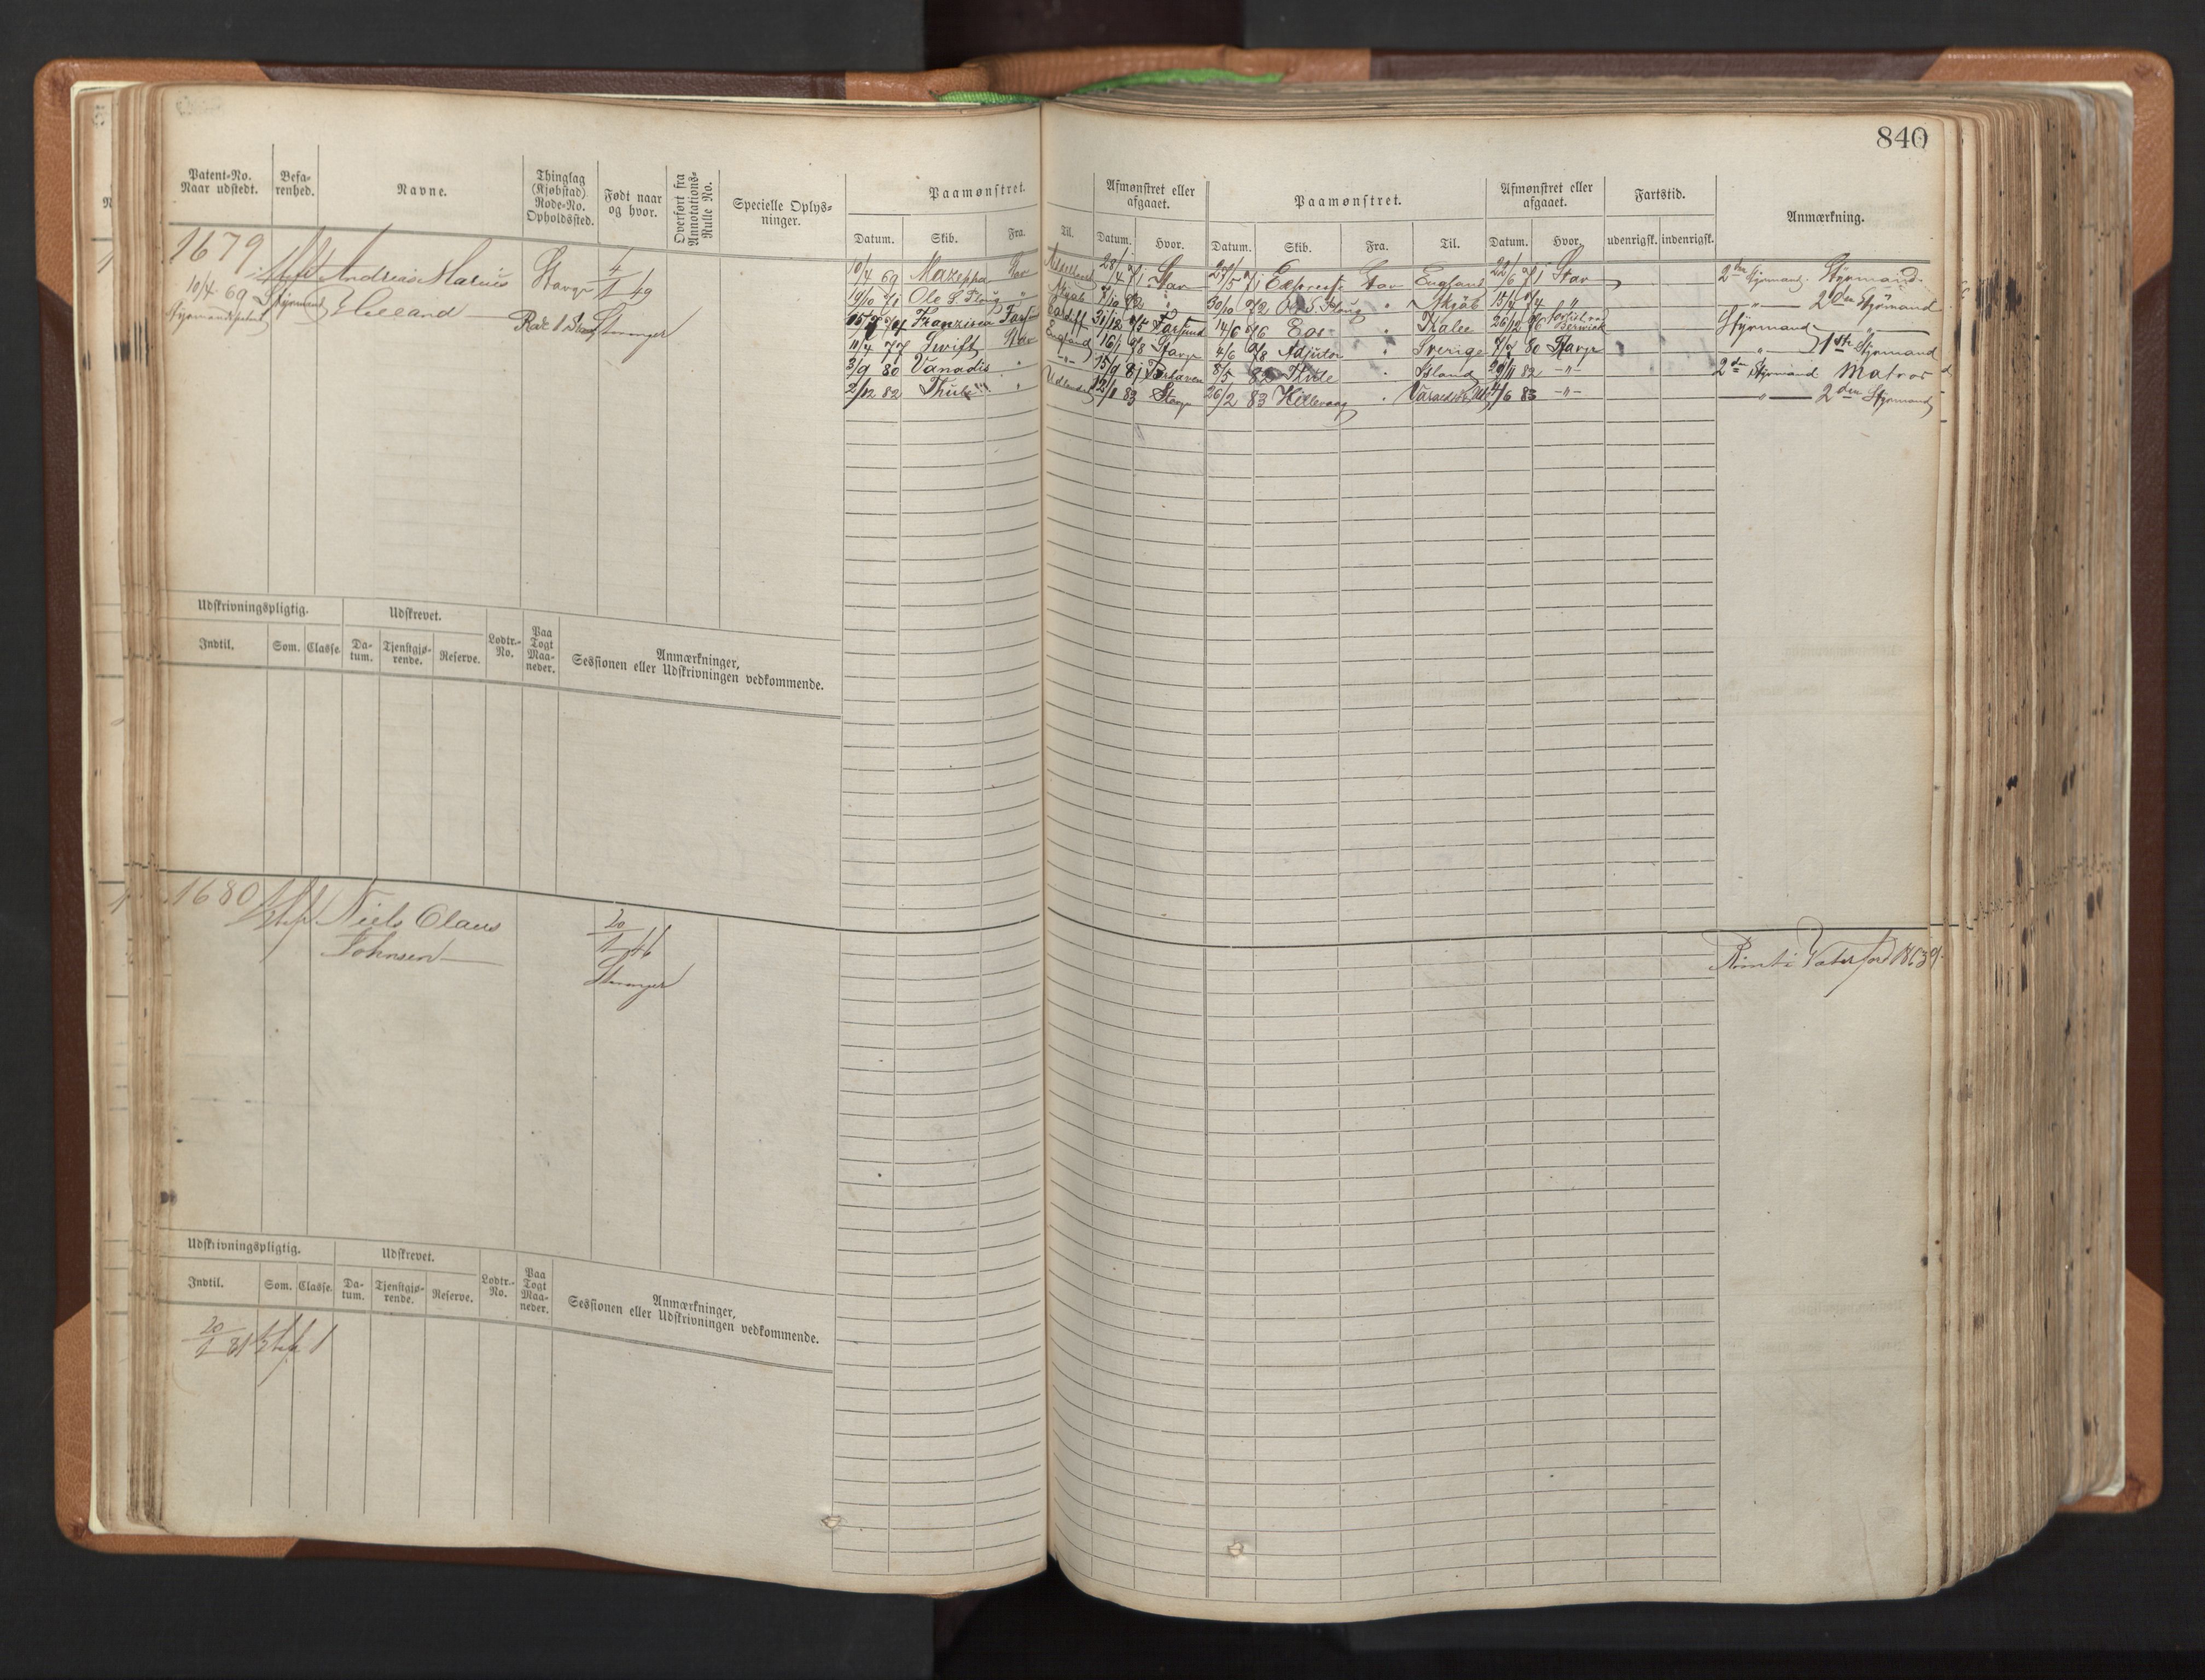 840
Patent-No. Naar udstedt.
Befarenhed.
Navne.
Thinglag (Kjøbstad) Rode-No. Opholdssted.
Født naar og hvor.
Overført fra Annotations-Rulle No.
Specielle Oplysninger.
Paamønstret.
Datum. Skib. Fra. Til.
Afmønstret eller afgaaet.
Datum. Hvor.
Paamønstret.
Datum. Skib. Fra. Til.
Afmønstret eller afgaaet.
Datum. Hvor.
Fartstid.
udenrigsk. indenrigsk.
Anmærkning.
1679
Andreas Marius
Helland
10/4 69
Styrmand
Stavgr
4/1 49
Stavanger
10/4 69 Mazeppa Stav 28/4 71 Stav 27/5 71 Express Stav England 22/6 71 Stav 2den Styrmand. Styrmand
19/10 71 Ole S. Ploug " 7/10 72 " 30/10 72 Ole S. Ploug " 15/7 74 " 2den Styrmand
Franzisca Farsund Cardiff 31/12 75 Farsund 14/6 76 Eos " 26/12 76 Berwick Styrmand
11/4 77 Swift Stav England 16/1 78 Stavgr 4/6 78 Adjutor " Sverige 7/7 80 Stavgr " 1ste Styrmand
3/9 80 Vanadis " " 15/9 81 8/5 82 Thule " Island 29/11 82 " 2den Styrmand Matros
2/12 82 Thule " Udlandet 12/1 83 Stavgr 26/2 83 Hillevaag " 4/6 83 " " 2den Styrmand
Udskrivningspligtig.
Indtil. Som. Classe.
Udskrevet.
Datum. Tjenstgjørende. Reserve.
Lodtr.-No.
Paa Togt Maaneder.
Anmærkninger,
Sessionen eller Udskrivningen vedkommende.
1680
Niels Claus
Johnsen
20/1 46
Stavanger
Rømt i Vaterford 18/6 39
Udskrivningspligtig.
Indtil. Som. Classe.
Udskrevet.
Datum. Tjenstgjørende. Reserve.
Lodtr.-No.
Paa Togt Maaneder.
Anmærkninger,
Sessionen eller Udskrivningen vedkommende.
20/1 81 1